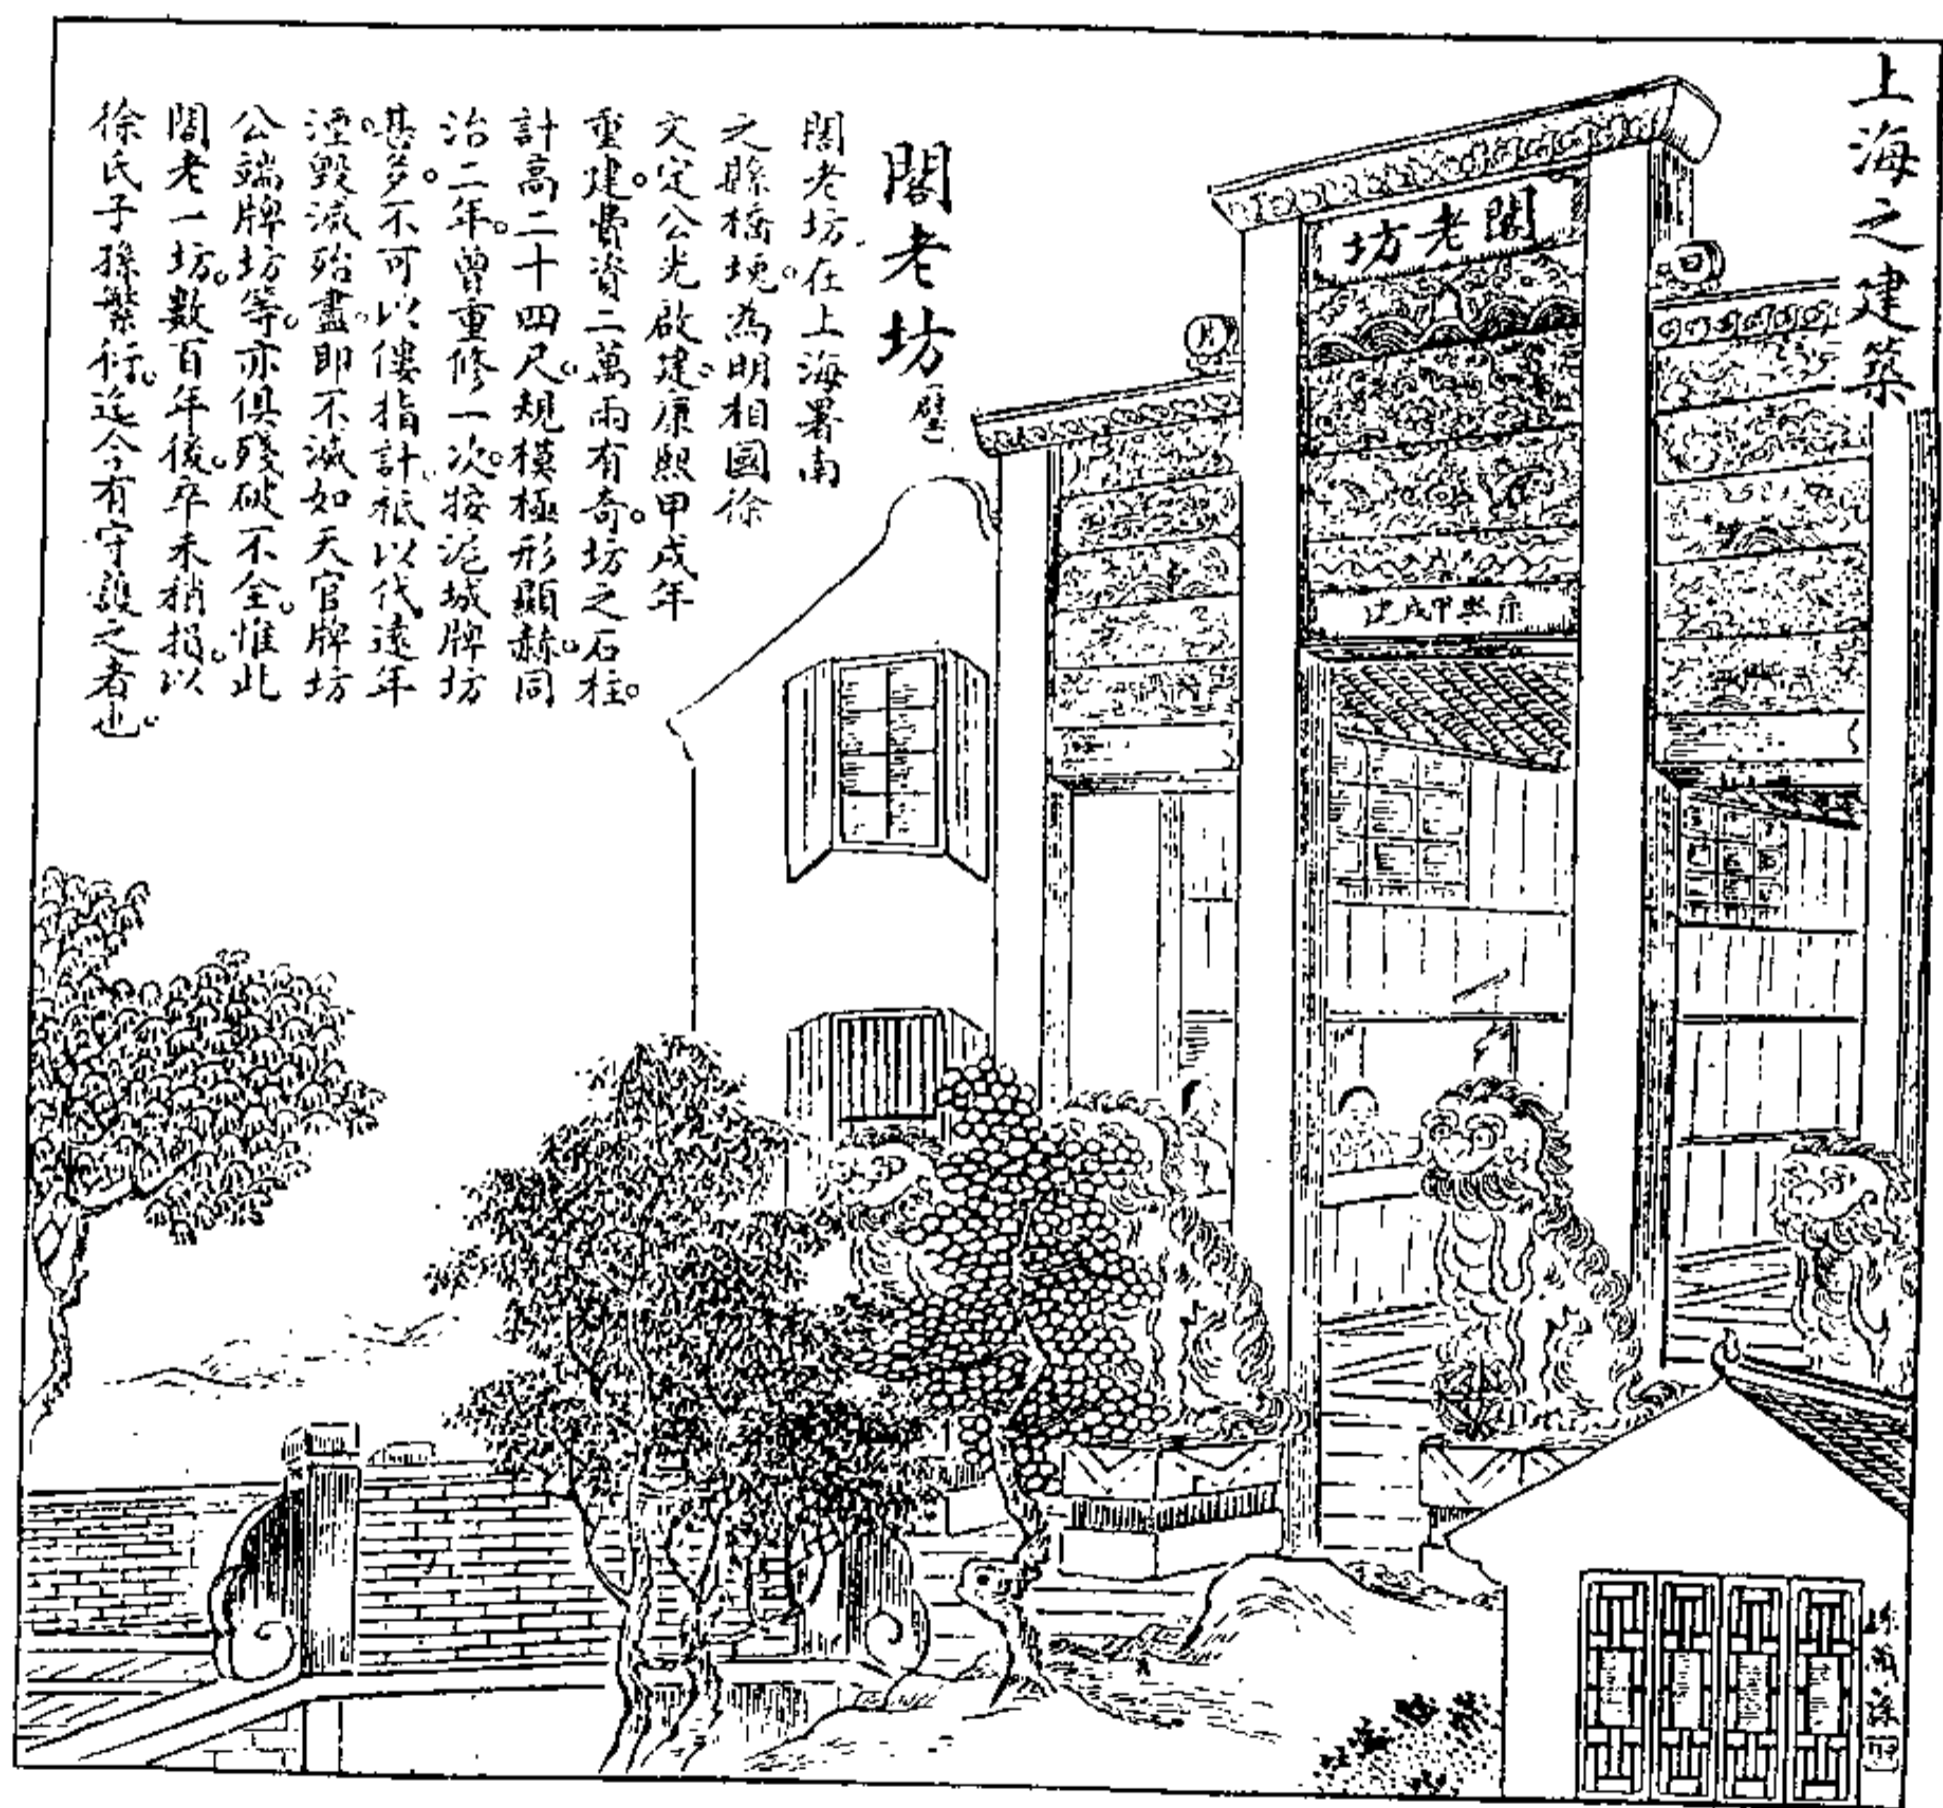 上海之建築
閣老坊
閣老坊在上海署南
之縣橋堍。為明相國徐
文定公光啟建。康熙甲戌年
重建。費資二萬兩有奇。坊之石柱。
計高二十四尺。規模極形顯赫。同
治二年。曾重修一次。按滬城牌坊
甚多。不可以僂指計。祇以代遠年
湮。毀滅殆盡。即不滅如天官牌坊
公端牌坊等。亦俱殘破不全。惟此
閣老一坊。數百年後。卒未稍損。以
徐氏子孫繁衍。迄今有守護之者也。
閣老坊
日
月
熙甲戌